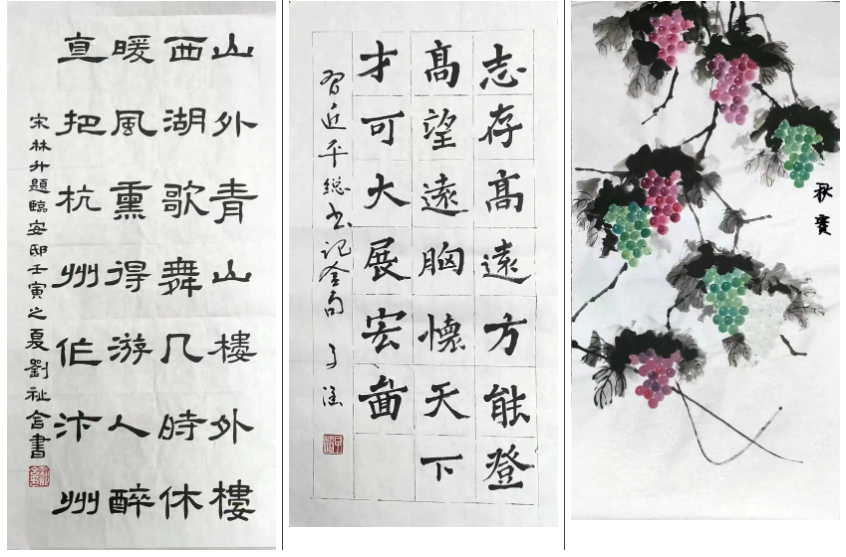 山外青山樓外樓
西湖歌舞几時休
暖風熏得游人醉
直把杭州作汴州
宋林升題臨安邸壬寅之夏劉祉含書
志存高遠方能登
高望遠胸懷天下
才可大展宏圖
習近平總书記金句 子涵
秋實